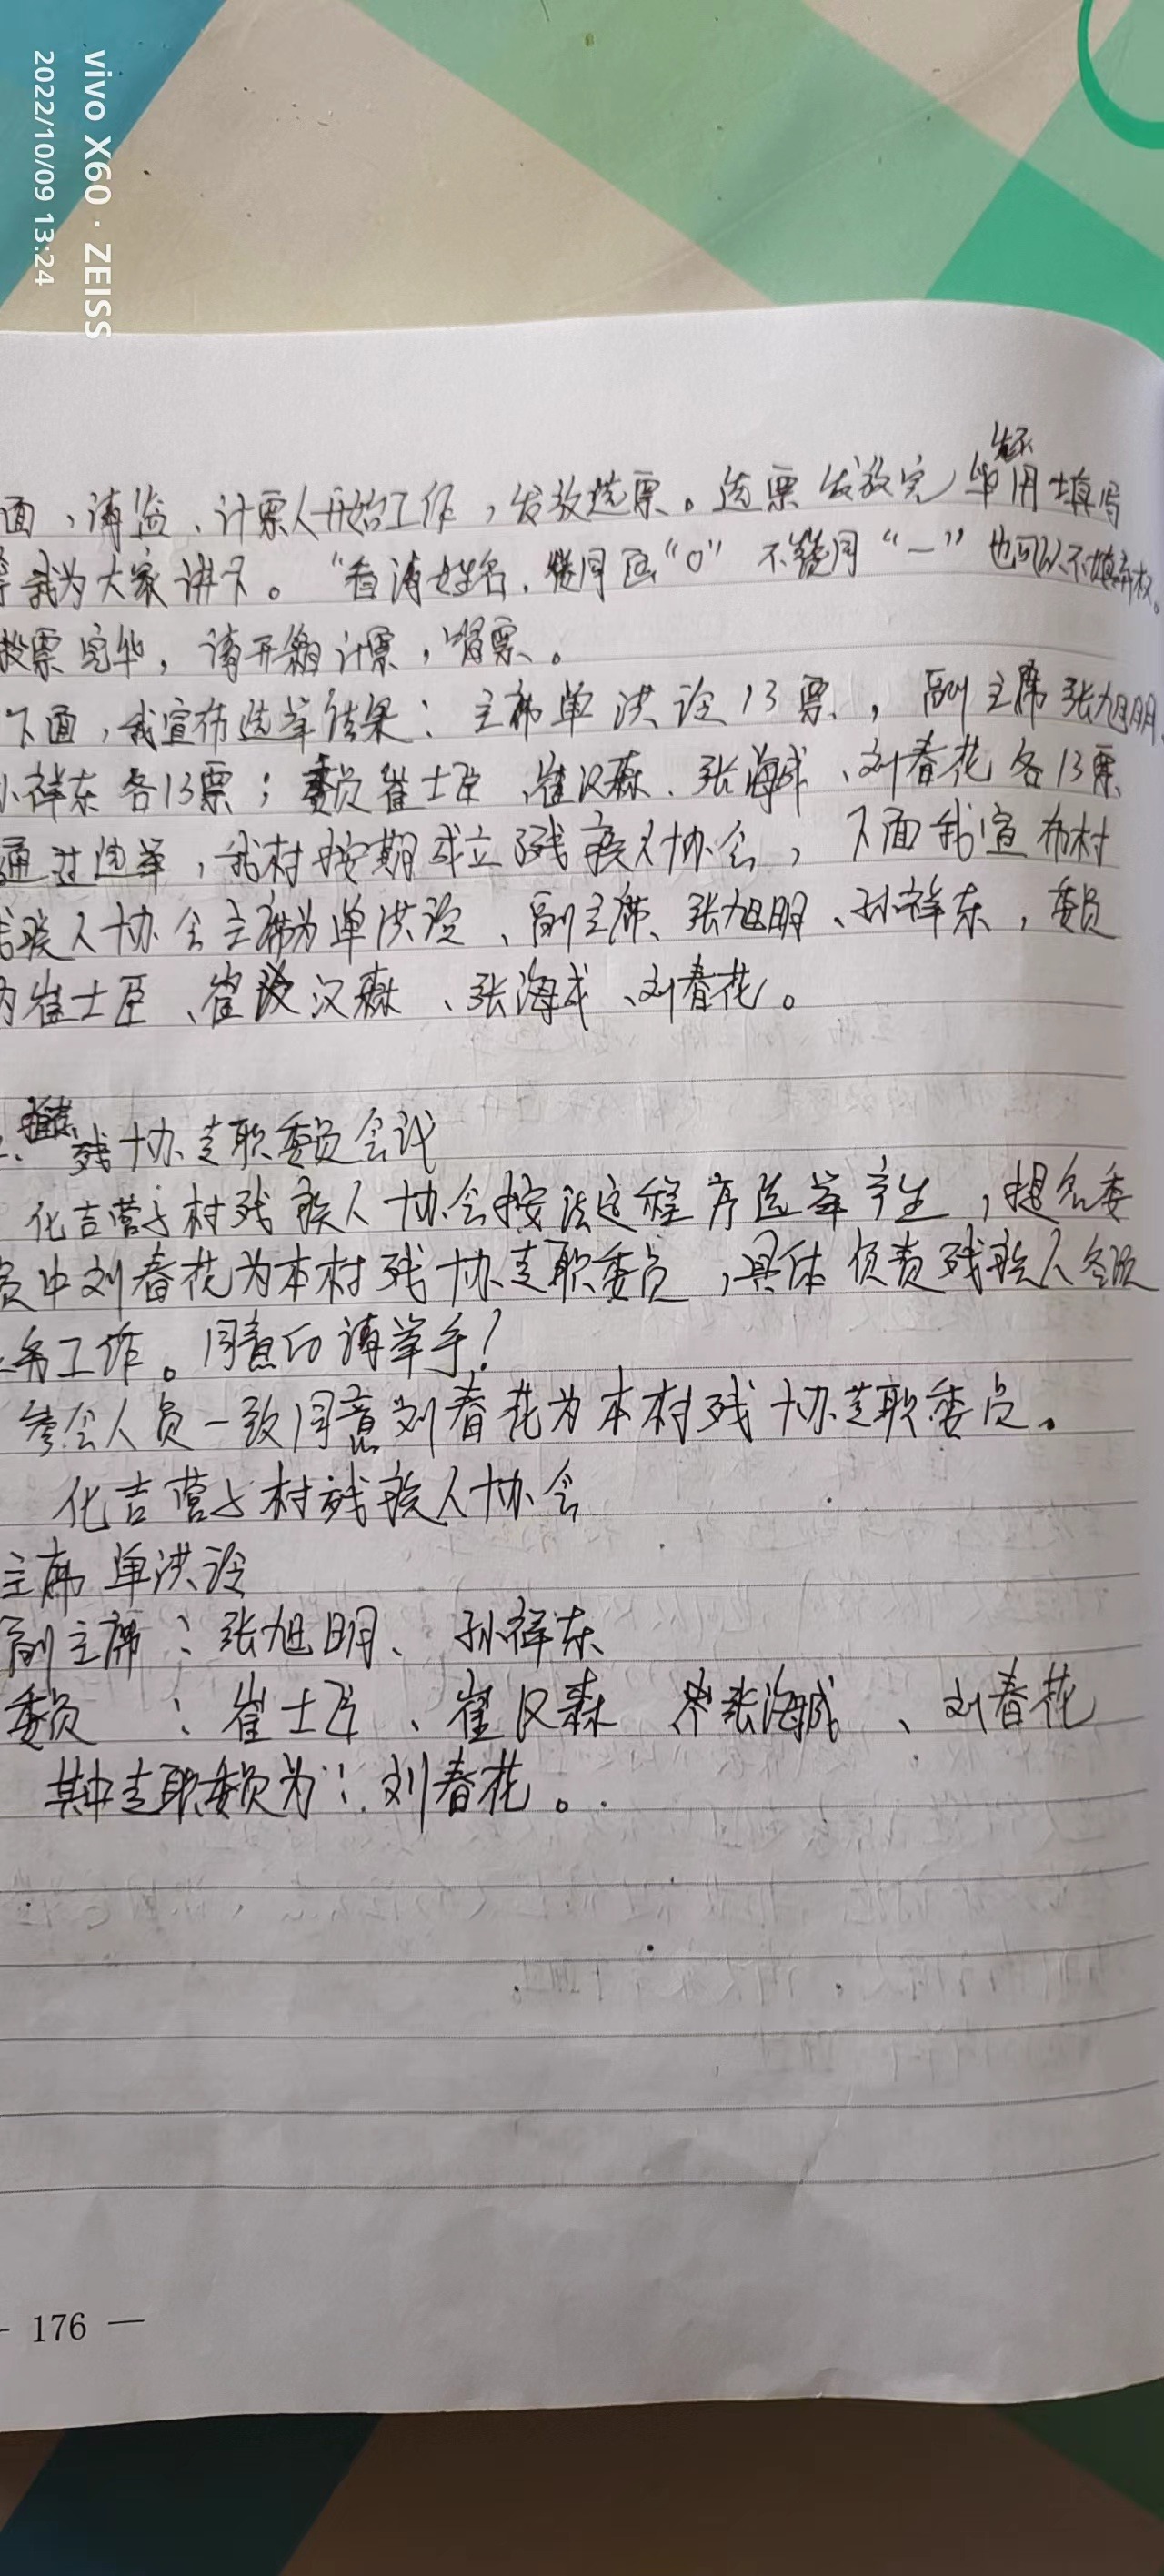 vivo X60 · ZEISS
2022/10/09 13:24
面，请监、计票人开始工作，发放选票。选票发放完毕 用填写
我为大家讲下。“看清姓名，赞同画“O”不赞同“一”也可以不填弃权。
投票完毕，请开箱计票，唱票。
下面，我宣布选举结果：主席单洪 13票，副主席张旭明、
孙祥东各13票；委员崔士臣、崔汉森、张海成、刘春花各13票
通过选举，我村按期成立残疾人协会，下面我宣布村
残疾人协会主席为单洪 、副主席、张旭明、孙祥东，委员
为崔士臣、崔汉森、张海成、刘春花。
残协专职委员会议
化吉营子村残疾人协会按法定程序选举产生，提名委
员中刘春花为本村残协专职委员，具体负责残疾人各项
务工作。同意的请举手！
参会人员一致同意刘春花为本村残协专职委员。
化吉营子村残疾人协会
主席 单洪
副主席：张旭明、孙祥东
委员：崔士臣、崔汉森 张海成、刘春花
其中专职委员为：刘春花。
176 —